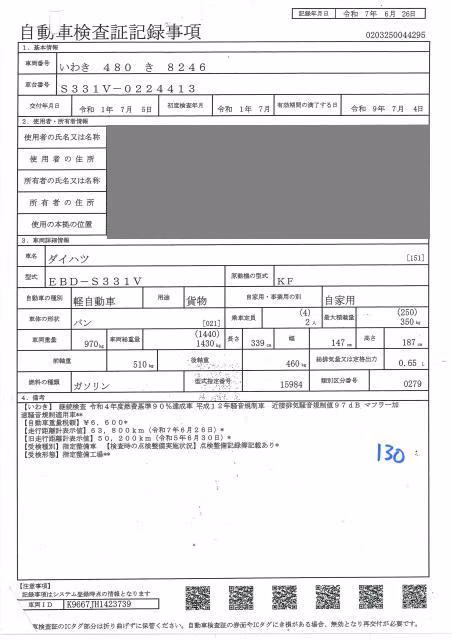 記録年月日 令和 7年 6月 26日
自動車検査証記録事項
0203250044295
1. 基本情報
車両番号 いわき 480 き 8246
車台番号 S331V-0224413
交付年月日 令和 1年 7月 5日 初度検査年月 令和 1年 7月 有効期間の満了する日 令和 9年 7月 4日
2. 使用者・所有者情報
使用者の氏名又は名称
使用者の住所
所有者の氏名又は名称
所有者の住所
使用の本拠の位置
3. 車両詳細情報
車名 ダイハツ [151]
型式 EBD-S331V 原動機の型式 KF
自動車の種別 軽自動車 用途 貨物 自家用・事業用の別 自家用
車体の形状 バン [021] 乗車定員 (4) 2人 最大積載量 (250) 350kg
車両重量 970kg 車両総重量 (1440) 1430kg 長さ 339cm 幅 147cm 高さ 187cm
前軸重 510kg 後軸重 460kg 総排気量又は定格出力 0.65 L
燃料の種類 ガソリン 型式指定番号 15984 類別区分番号 0279
4. 備考
【いわき】 継続検査 令和4年度燃費基準90%達成車 平成12年騒音規制車 近接排気騒音規制値97dB マフラー加
速騒音規制適用車**
【自動車重量税額】¥6,600*
【走行距離計表示値】63,800km(令和7年6月26日)*
【旧走行距離計表示値】50,200km(令和5年6月30日)*
【受検種別】指定整備車 【検査時の点検整備実施状況】点検整備記録簿記載あり*
【受検形態】指定整備工場**
130
【注意事項】
記録事項はシステム登録時点の情報となります
車両ID K9667JH1423739
車検査証のICタグ部分は折り曲げずに保管ください。自動車検査証の券面やICタグにき損がある場合、無効となり再交付が必要です。